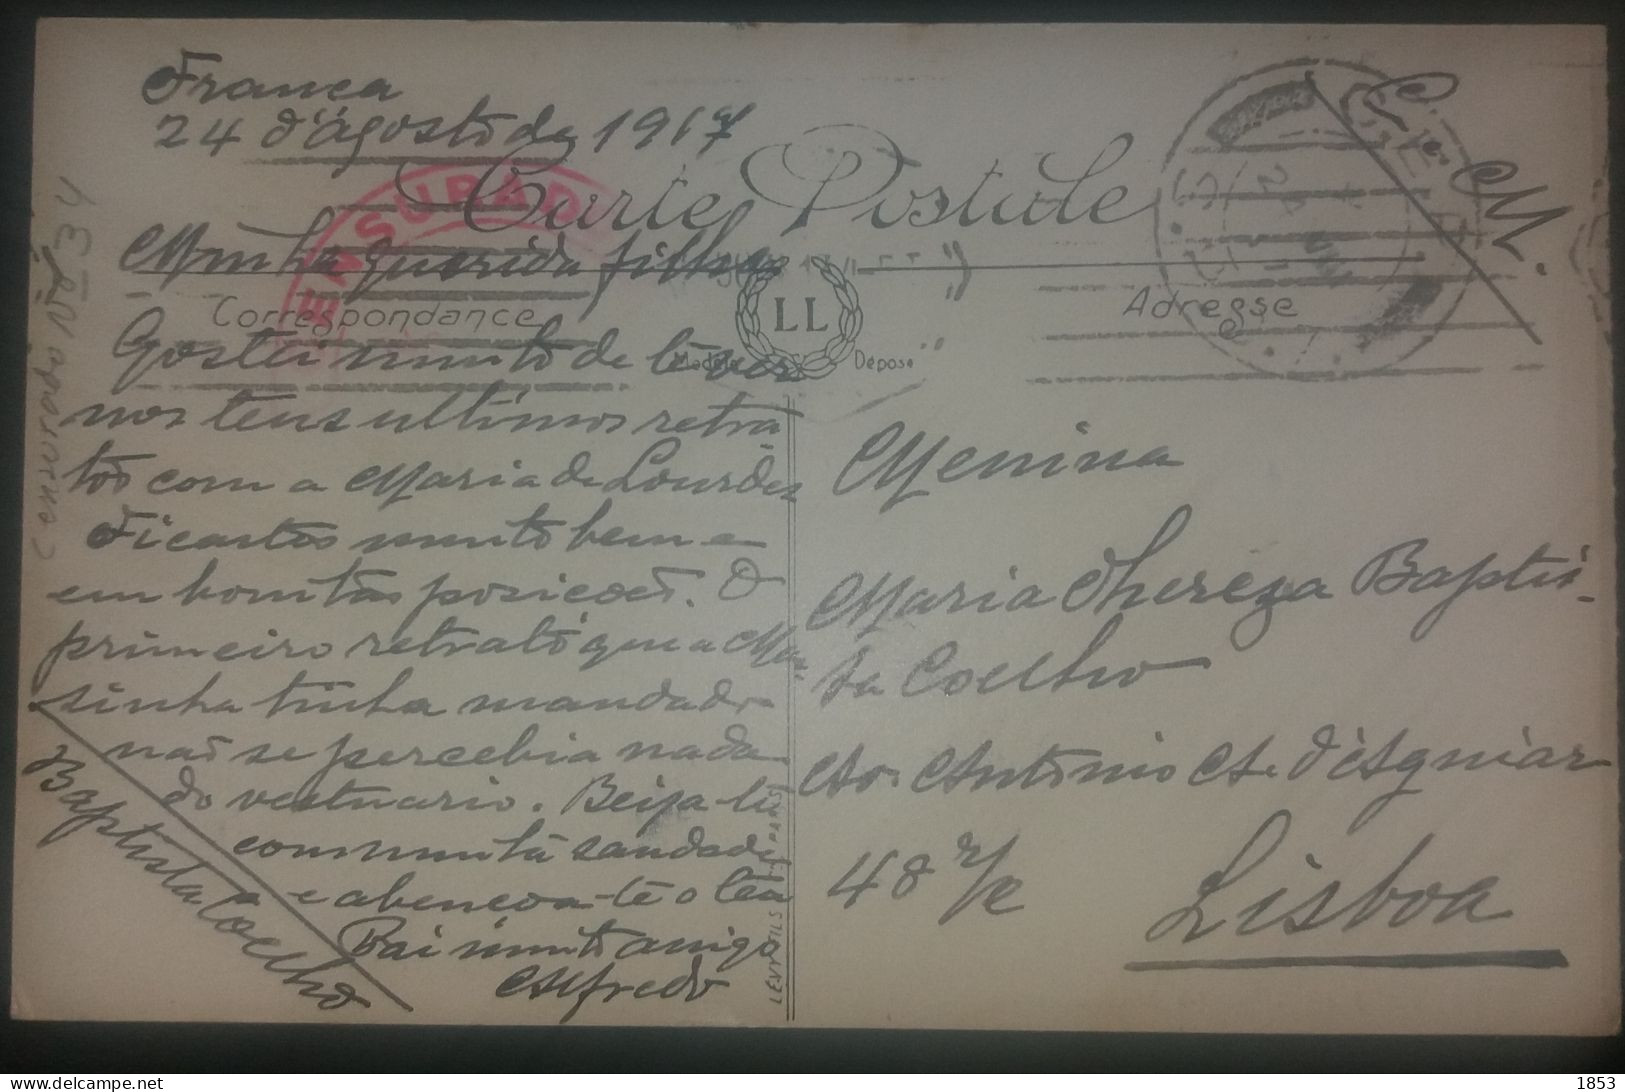 França
24 d'Agosto de 1917
Carte Postale
C. e. M.
CENSURADO
Minha querida filha
Correspondance
LL
Modèle Déposé
Adresse
Gostei muito de te ver
nos teus ultimos retra
tos com a Maria de Lourdes
Ficastes muito bem e
em bonitas posicões. O
primeiro retrato que a Ma-
sinha tinha mandado
não se percebia nada
do vestuario. Beija-te
com muita saudade
e abençoa-te o teu
Pai muito amigo
Alfredo
Baptista Coelho
Censurado Nº 34
LEVY FILS & Cie PARIS
Menina
Maria Thereza Baptis-
ta Coelho
Av. Antonio A. d'Aguiar
48 r/c
Lisboa
delcampe.net
1853